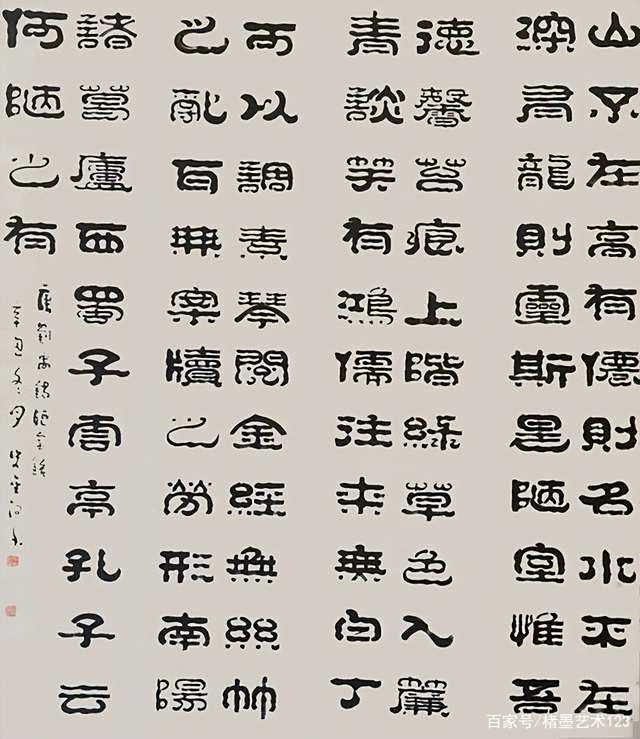 山不在高有僊則名水不在
深有龍則靈斯是陋室惟吾
德馨苔痕上階綠草色入簾
青談笑有鴻儒往来無白丁
可以調素琴閱金經無絲竹
之亂耳無案牘之勞形南陽
諸葛廬西蜀子雲亭孔子云
何陋之有
唐劉禹錫陋室銘
辛丑冬月
百家号/楮墨艺术123